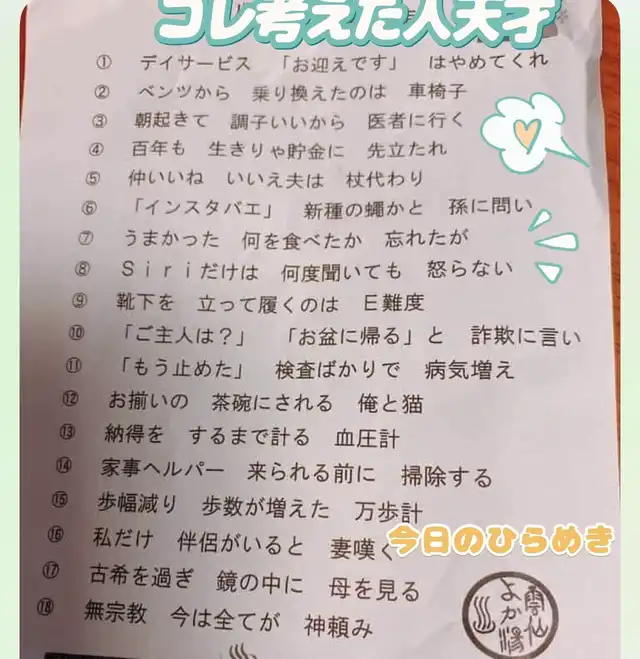 コレ考えた人天才
① デイサービス 「お迎えです」 はやめてくれ
② ベンツから 乗り換えたのは 車椅子
③ 朝起きて 調子いいから 医者に行く
④ 百年も 生きりゃ貯金に 先立たれ
⑤ 仲いいね いいえ夫は 杖代わり
⑥ 「インスタバエ」 新種の蠅かと 孫に問い
⑦ うまかった 何を食べたか 忘れたが
⑧ Ｓｉｒｉだけは 何度聞いても 怒らない
⑨ 靴下を 立って履くのは Ｅ難度
⑩ 「ご主人は？」 「お盆に帰る」と 詐欺に言い
⑪ 「もう止めた」 検査ばかりで 病気増え
⑫ お揃いの 茶碗にされる 俺と猫
⑬ 納得を するまで計る 血圧計
⑭ 家事ヘルパー 来られる前に 掃除する
⑮ 歩幅減り 歩数が増えた 万歩計
⑯ 私だけ 伴侶がいると 妻嘆く
今日のひらめき
⑰ 古希を過ぎ 鏡の中に 母を見る
⑱ 無宗教 今は全てが 神頼み
雲仙
よか湯